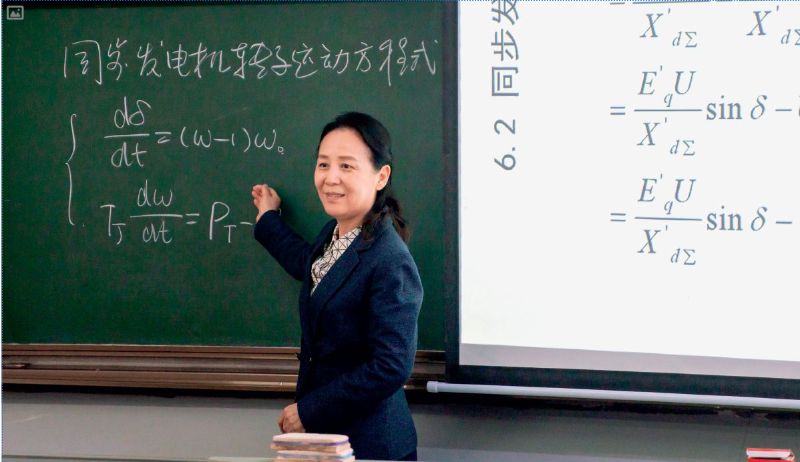 同步发电机转子运动方程式
dδ/dt = (ω-1)ω₀
T_J dω/dt = P_T -
6.2 同步发
X'_dΣ X'_d
= E'_q U / X'_dΣ sin δ -
= E'_q U / X'_dΣ sin δ -